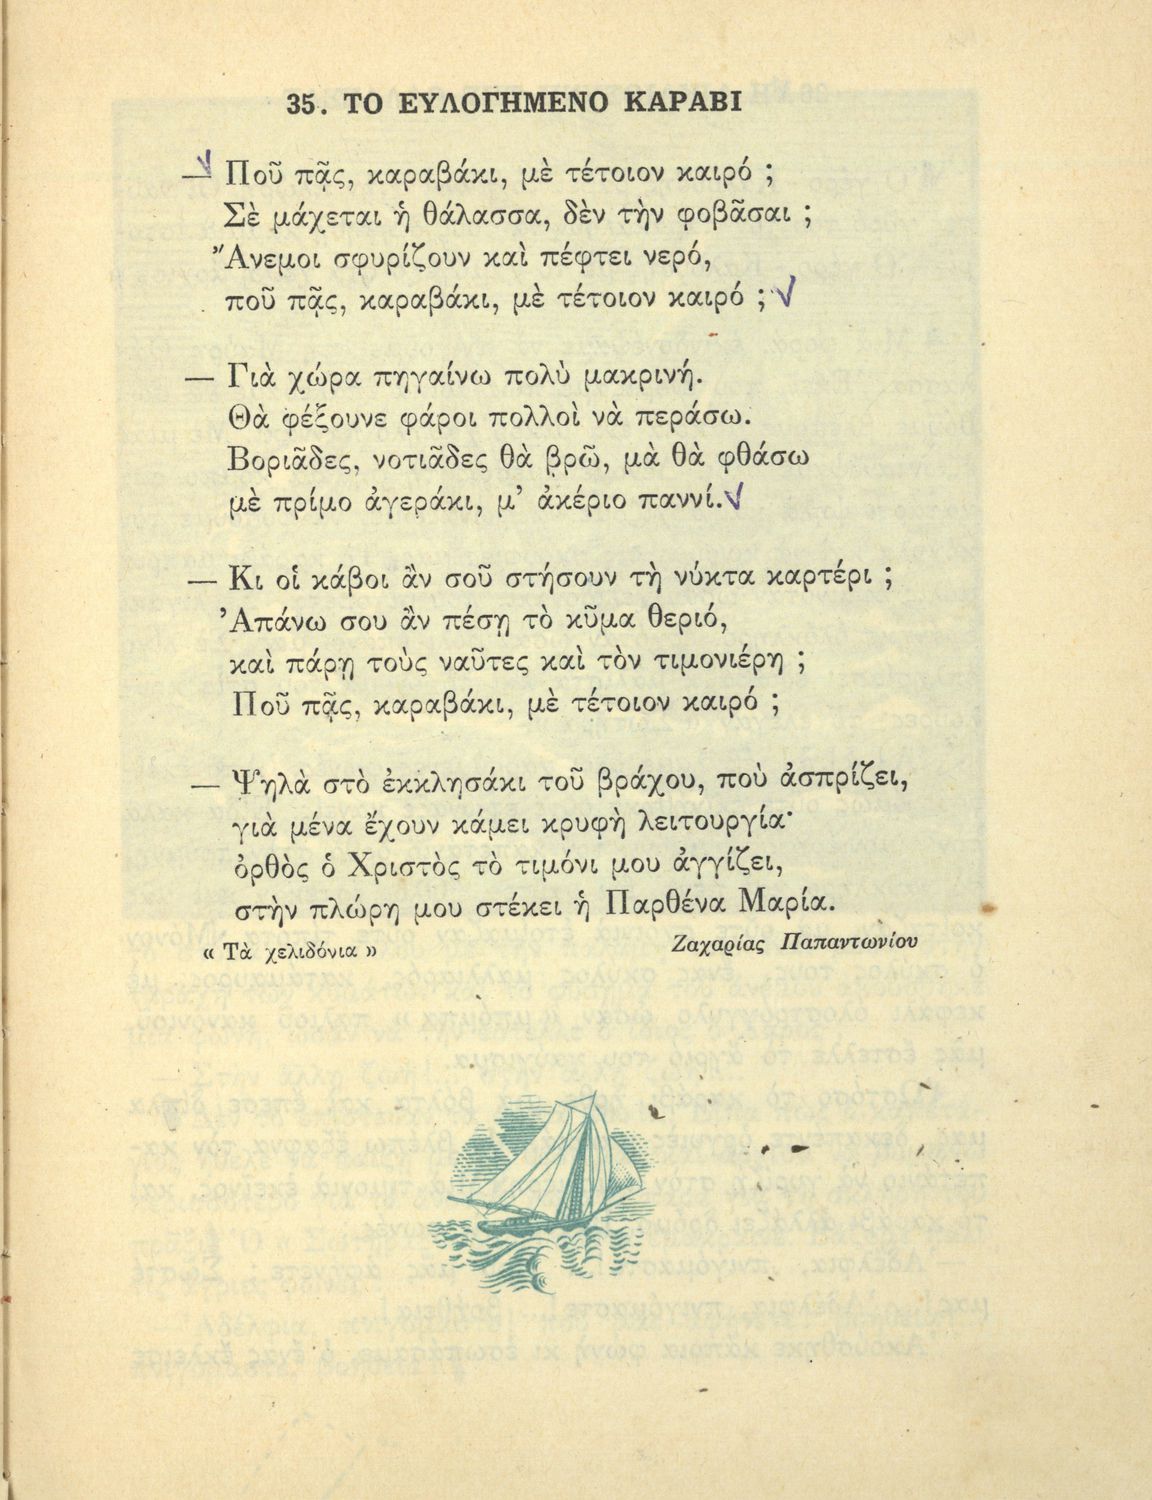 35. ΤΟ ΕΥΛΟΓΗΜΕΝΟ ΚΑΡΑΒΙ
— Ποῦ πᾷς, καραβάκι, μὲ τέτοιον καιρό ;
Σὲ μάχεται ἡ θάλασσα, δὲν τὴν φοβᾶσαι ;
Ἄνεμοι σφυρίζουν καὶ πέφτει νερό,
ποῦ πᾷς, καραβάκι, μὲ τέτοιον καιρό ;
— Γιὰ χώρα πηγαίνω πολὺ μακρινή.
Θὰ φέξουνε φάροι πολλοὶ νὰ περάσω.
Βοριᾶδες, νοτιᾶδες θὰ βρῶ, μὰ θὰ φθάσω
μὲ πρίμο ἀγεράκι, μ’ ἀκέριο παννί.
— Κι οἱ κάβοι ἂν σοῦ στήσουν τὴ νύκτα καρτέρι ;
Ἀπάνω σου ἂν πέσῃ τὸ κῦμα θεριό,
καὶ πάρῃ τοὺς ναῦτες καὶ τὸν τιμονιέρη ;
Ποῦ πᾷς, καραβάκι, μὲ τέτοιον καιρό ;
— Ψηλὰ στὸ ἐκκλησάκι τοῦ βράχου, ποὺ ἀσπρίζει,
γιὰ μένα ἔχουν κάμει κρυφὴ λειτουργία·
ὀρθὸς ὁ Χριστὸς τὸ τιμόνι μου ἀγγίζει,
στὴν πλώρη μου στέκει ἡ Παρθένα Μαρία.
« Τὰ χελιδόνια » Ζαχαρίας Παπαντωνίου